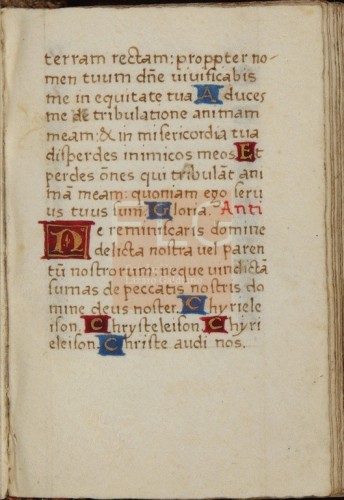 terram rectam: proppter no-
men tuum dñe uiuificabis
me in equitate tua Aduces
me de tribulatione animam
meam: & in misericordia tua
disperdes inimicos meos. Et
perdes oñes qui tribulãt ani
mã meam: quoniam ego seru
us tuus sum. Gloria. Anti
Ne reminiscaris domine
delicta nostra uel paren
tũ nostrorum: neque uindictã
sumas de peccatis nostris do
mine deus noster. Chyriele
ison. Chrysteleison. Chyri
eleison. Christe audi nos.